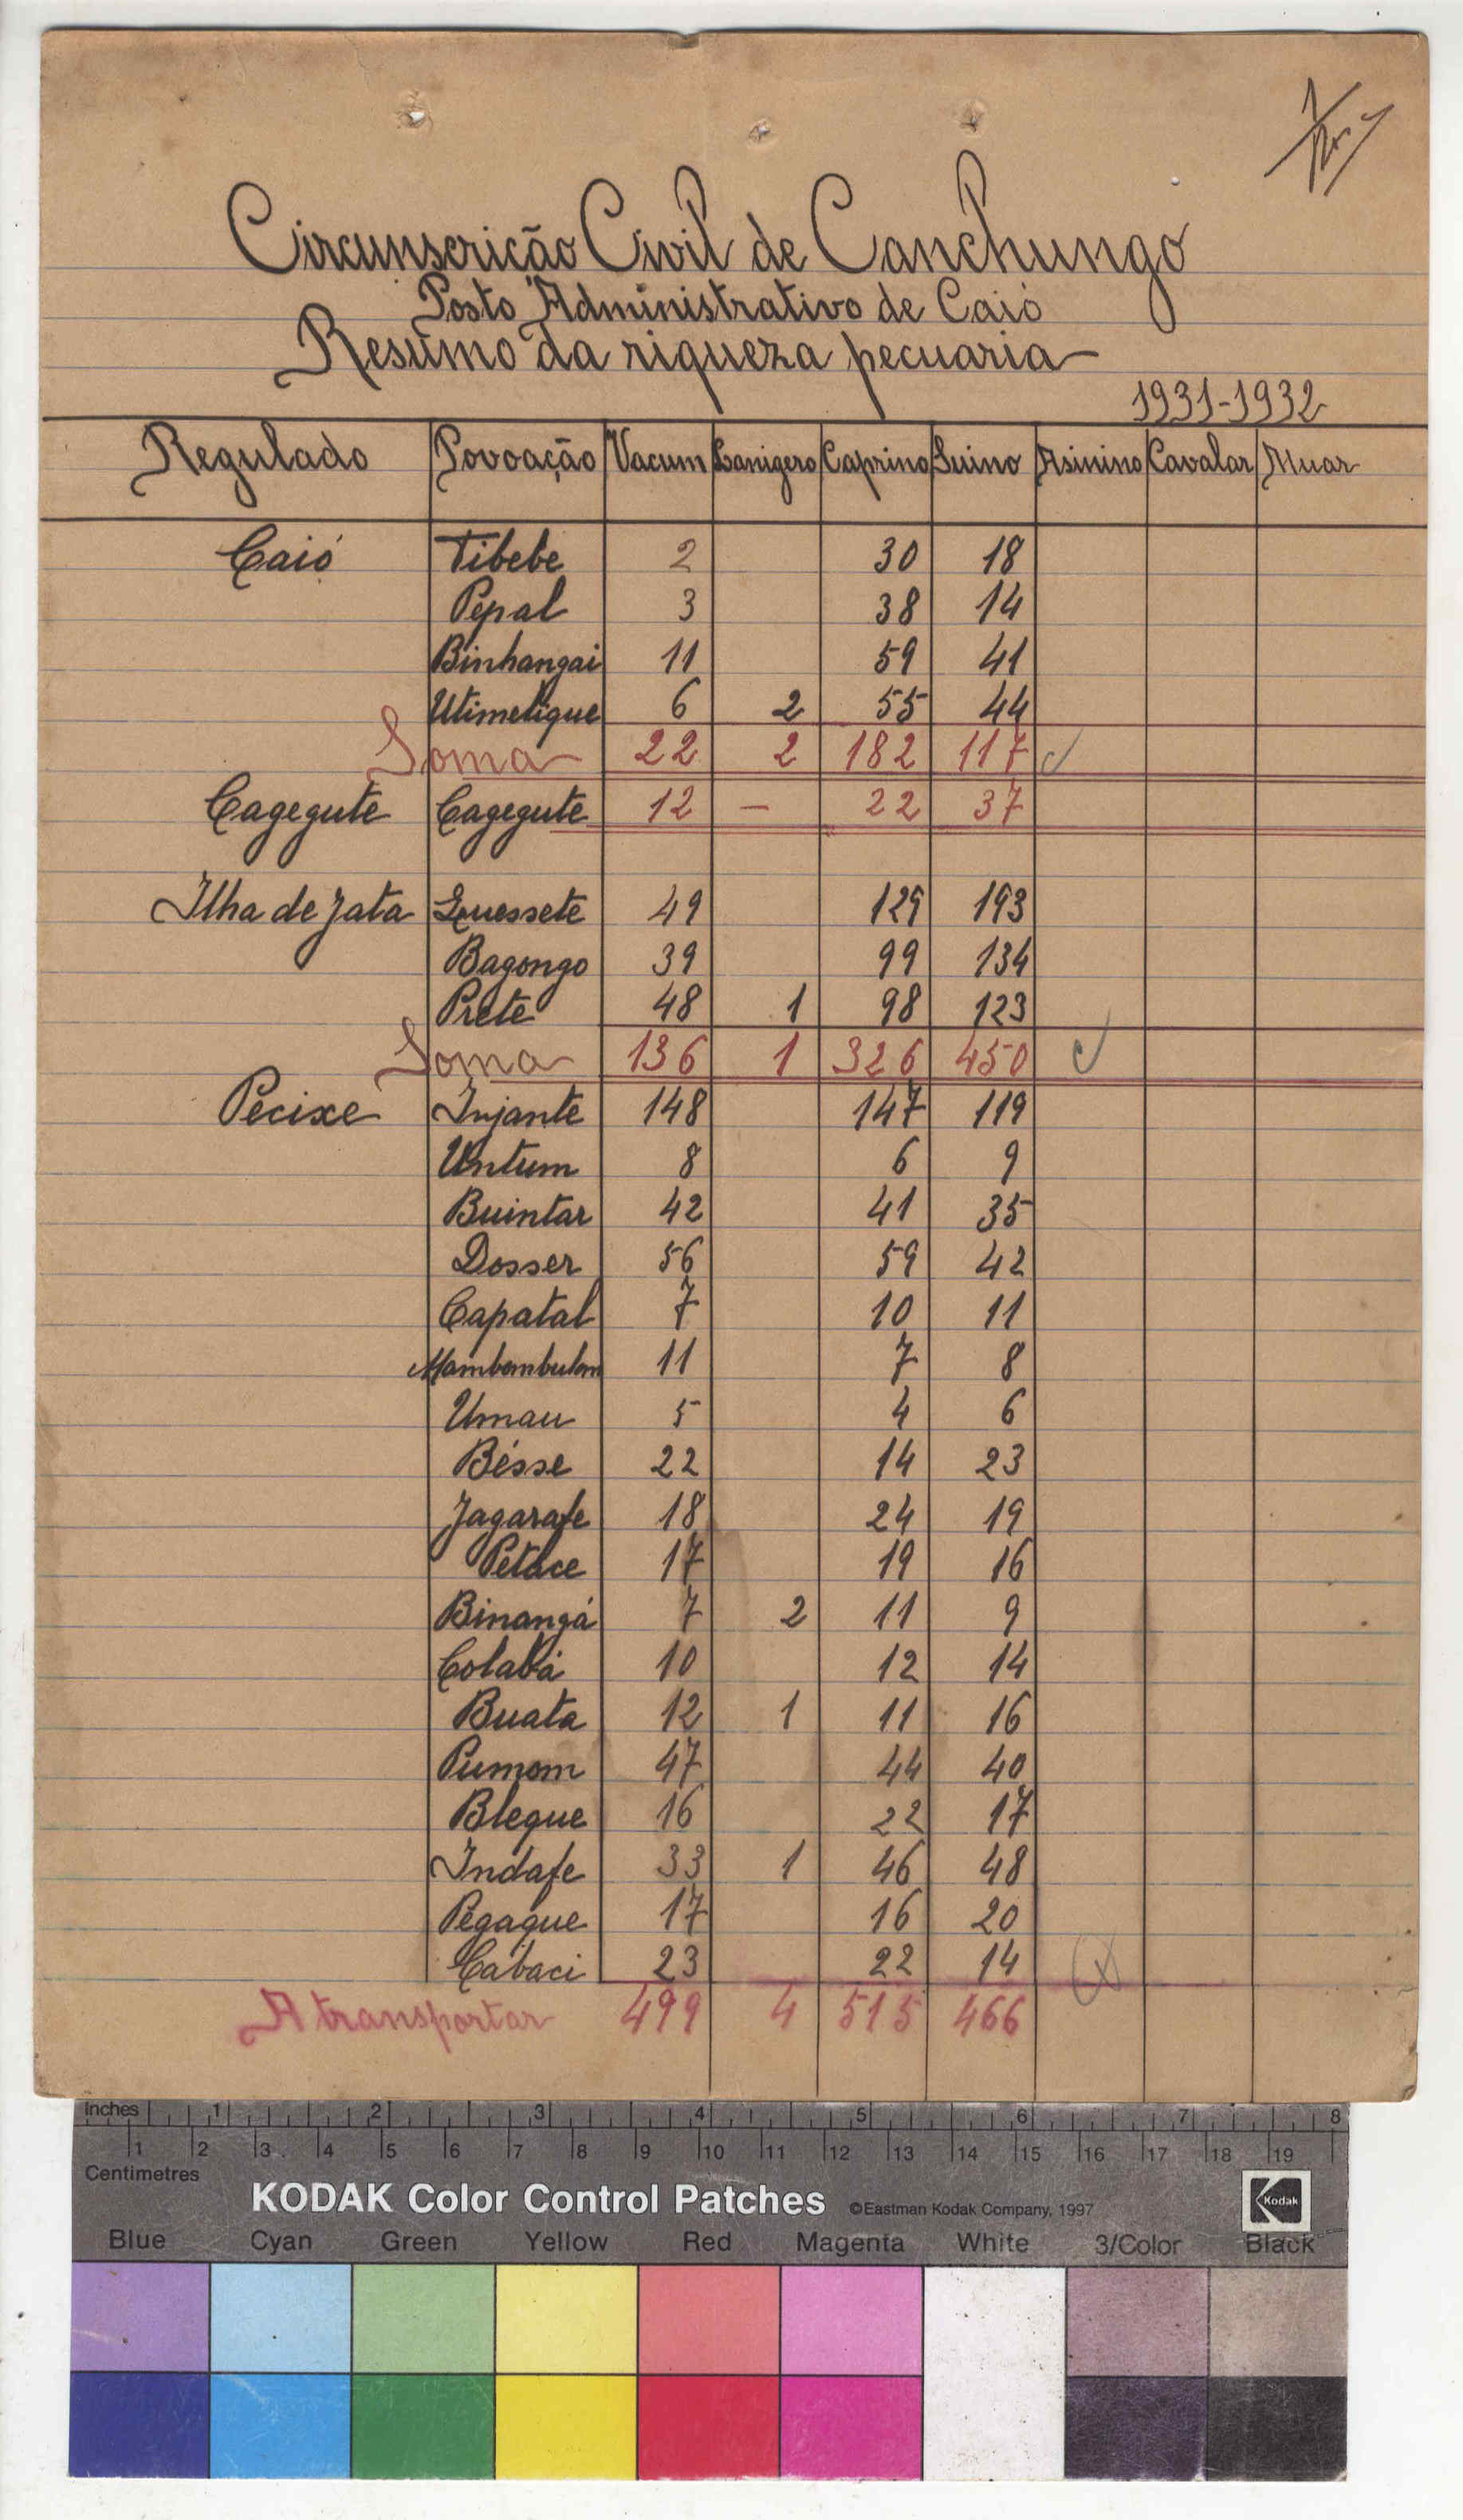 Circunscrição Civil de Canchungo
Posto Administrativo de Caió
Resumo da riqueza pecuaria
1931-1932
Regulado Povoação Vacum Lanigero Caprino Suino Asinino Cavalar Muar
Caió Tibebe 2 30 18
Pepal 3 38 14
Binhangai 11 59 41
Utimetique 6 2 55 44
Soma 22 2 182 117
Cagegute Cagegute 12 - 22 37
Ilha de Jata Quessete 49 129 193
Bagongo 39 99 134
Prete 48 1 98 123
Soma 136 1 326 450
Pecixe Injante 148 147 119
Untum 8 6 9
Buintar 42 41 35
Dosser 56 59 42
Capatal 7 10 11
Mambombulom 11 7 8
Umau 5 4 6
Bésse 22 14 23
Jagarafe 18 24 19
Petace 17 19 16
Binangá 7 2 11 9
Colabá 10 12 14
Buata 12 1 11 16
Pumom 47 44 40
Bleque 16 22 17
Indafe 33 1 46 48
Pegaque 17 16 20
Cabaci 23 22 14
A transportar 499 4 515 466
Inches 1 2 3 4 5 6 7 8
1 2 3 4 5 6 7 8 9 10 11 12 13 14 15 16 17 18 19
Centimetres
KODAK Color Control Patches ©Eastman Kodak Company, 1997 Kodak
Blue Cyan Green Yellow Red Magenta White 3/Color Black